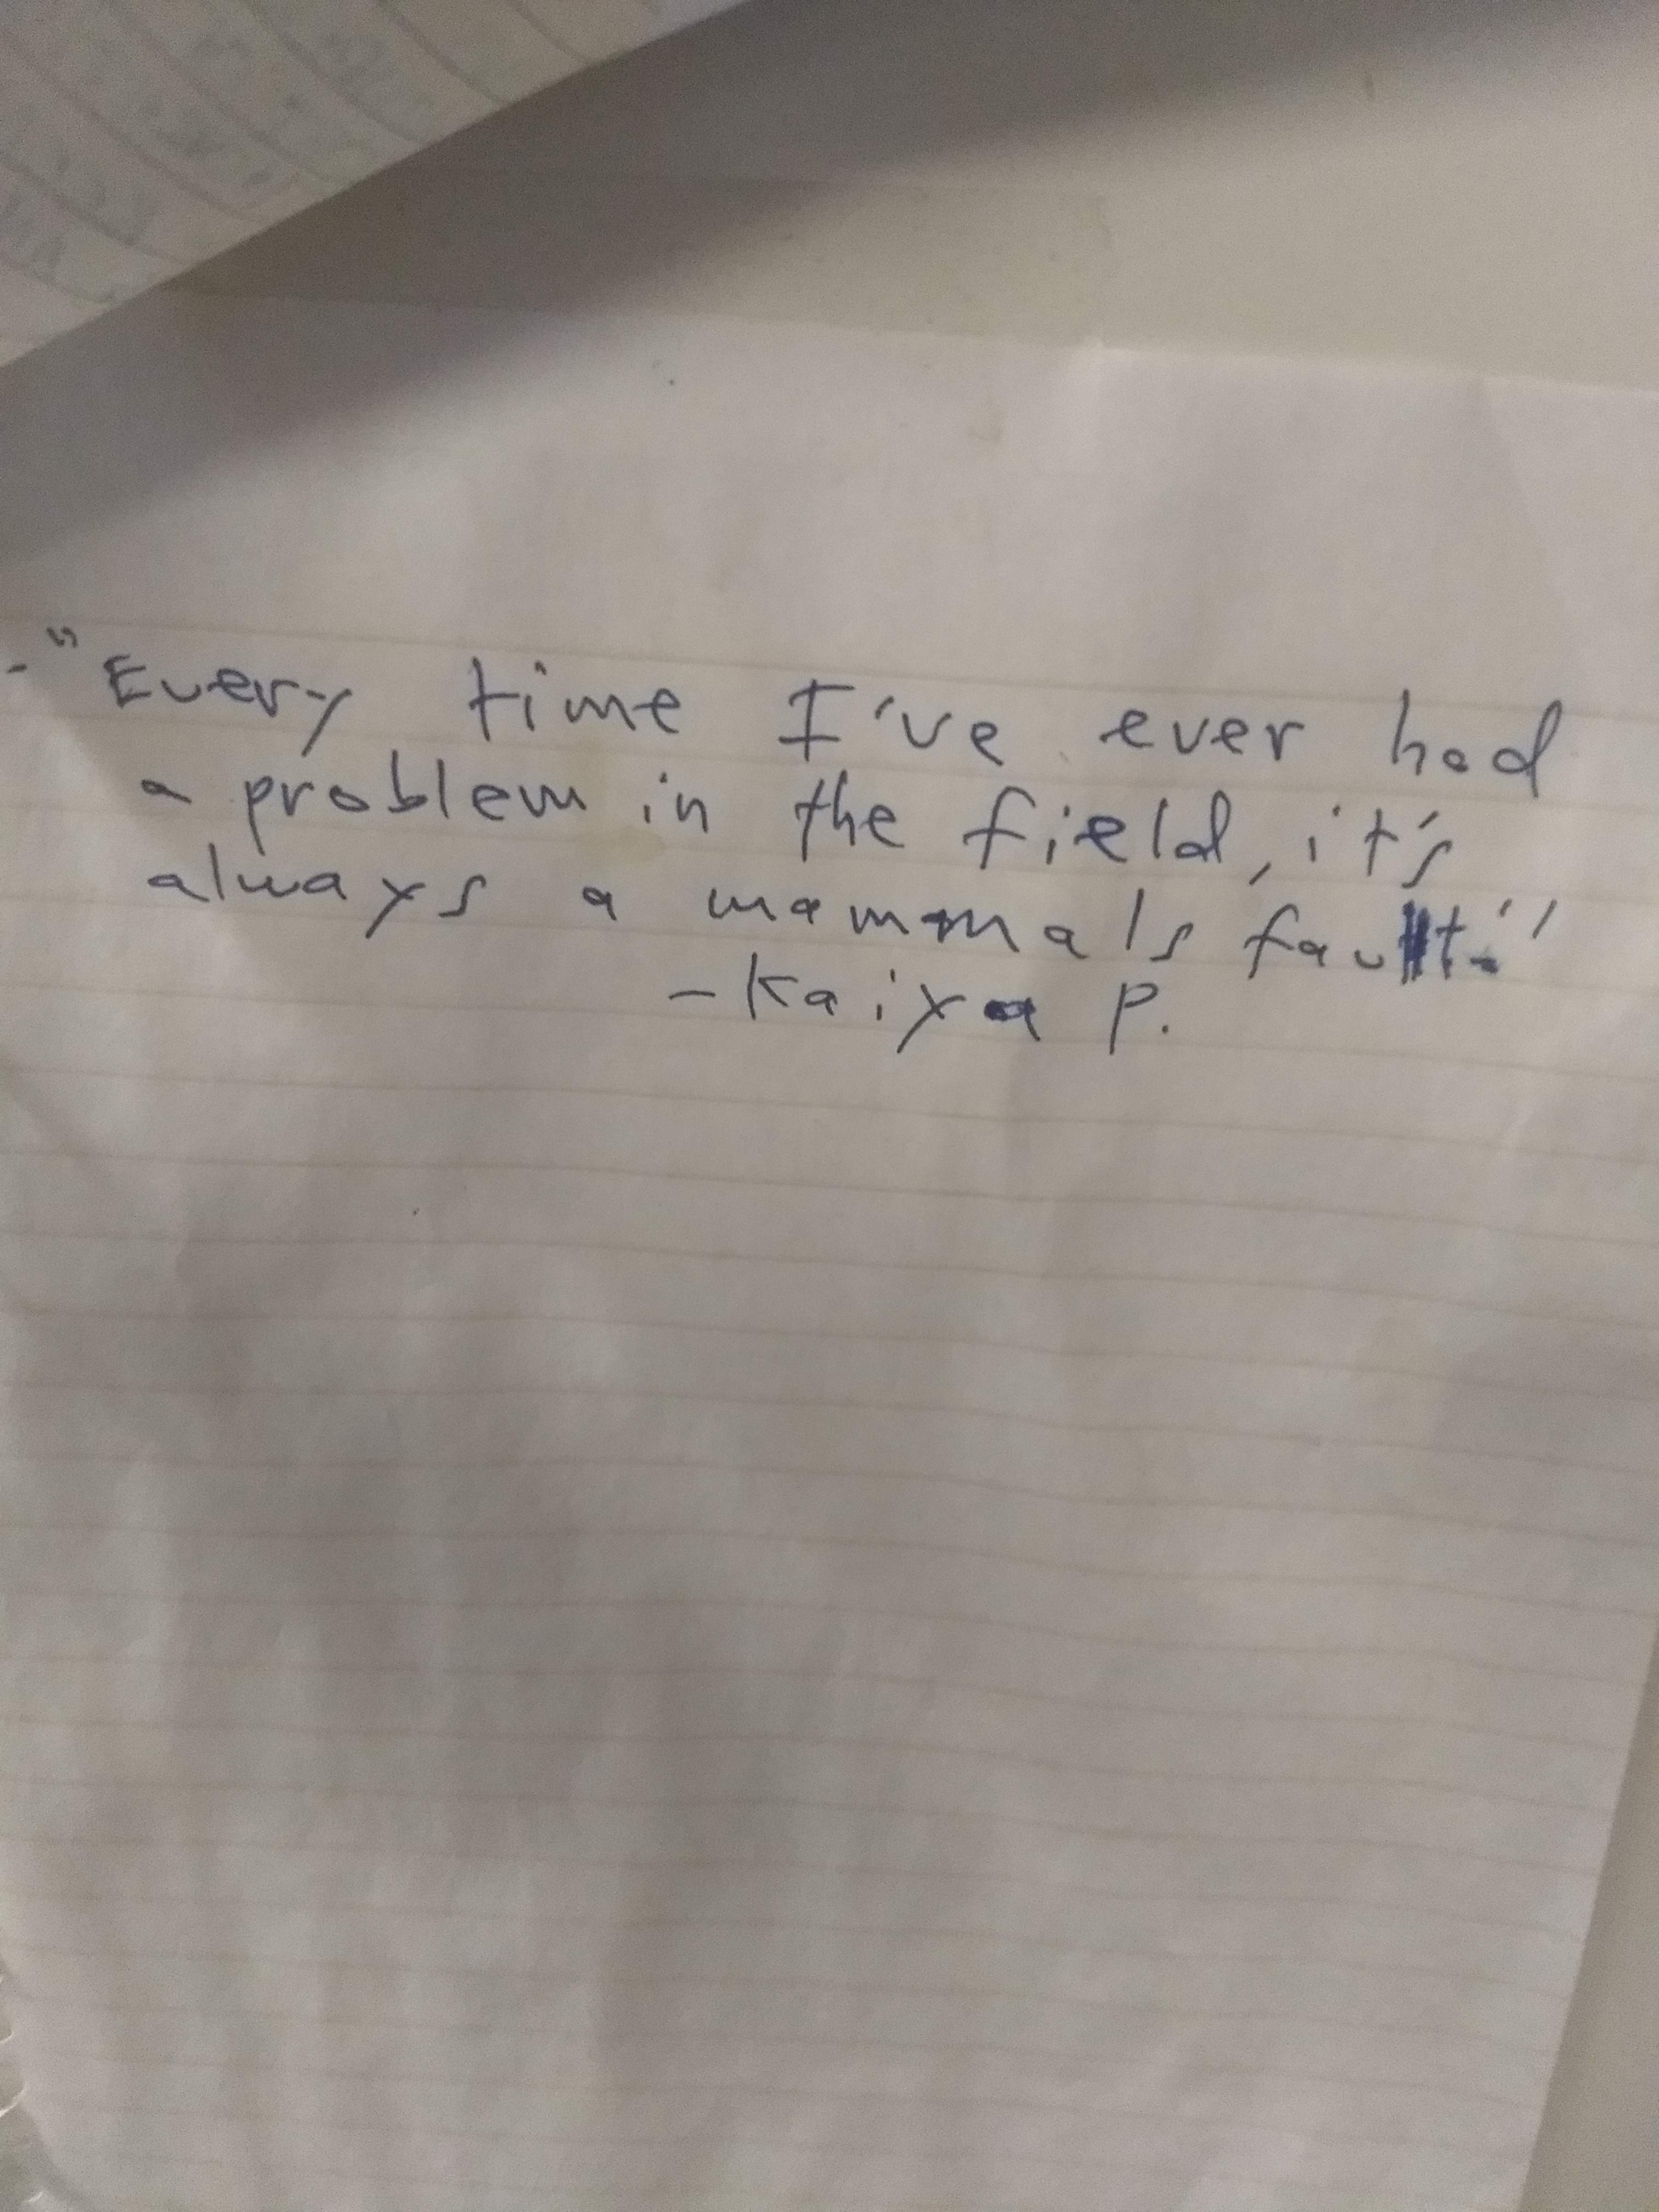 - "Every time I've ever had
a problem in the field, it's
always a mammals fault."
- Kaiya P.